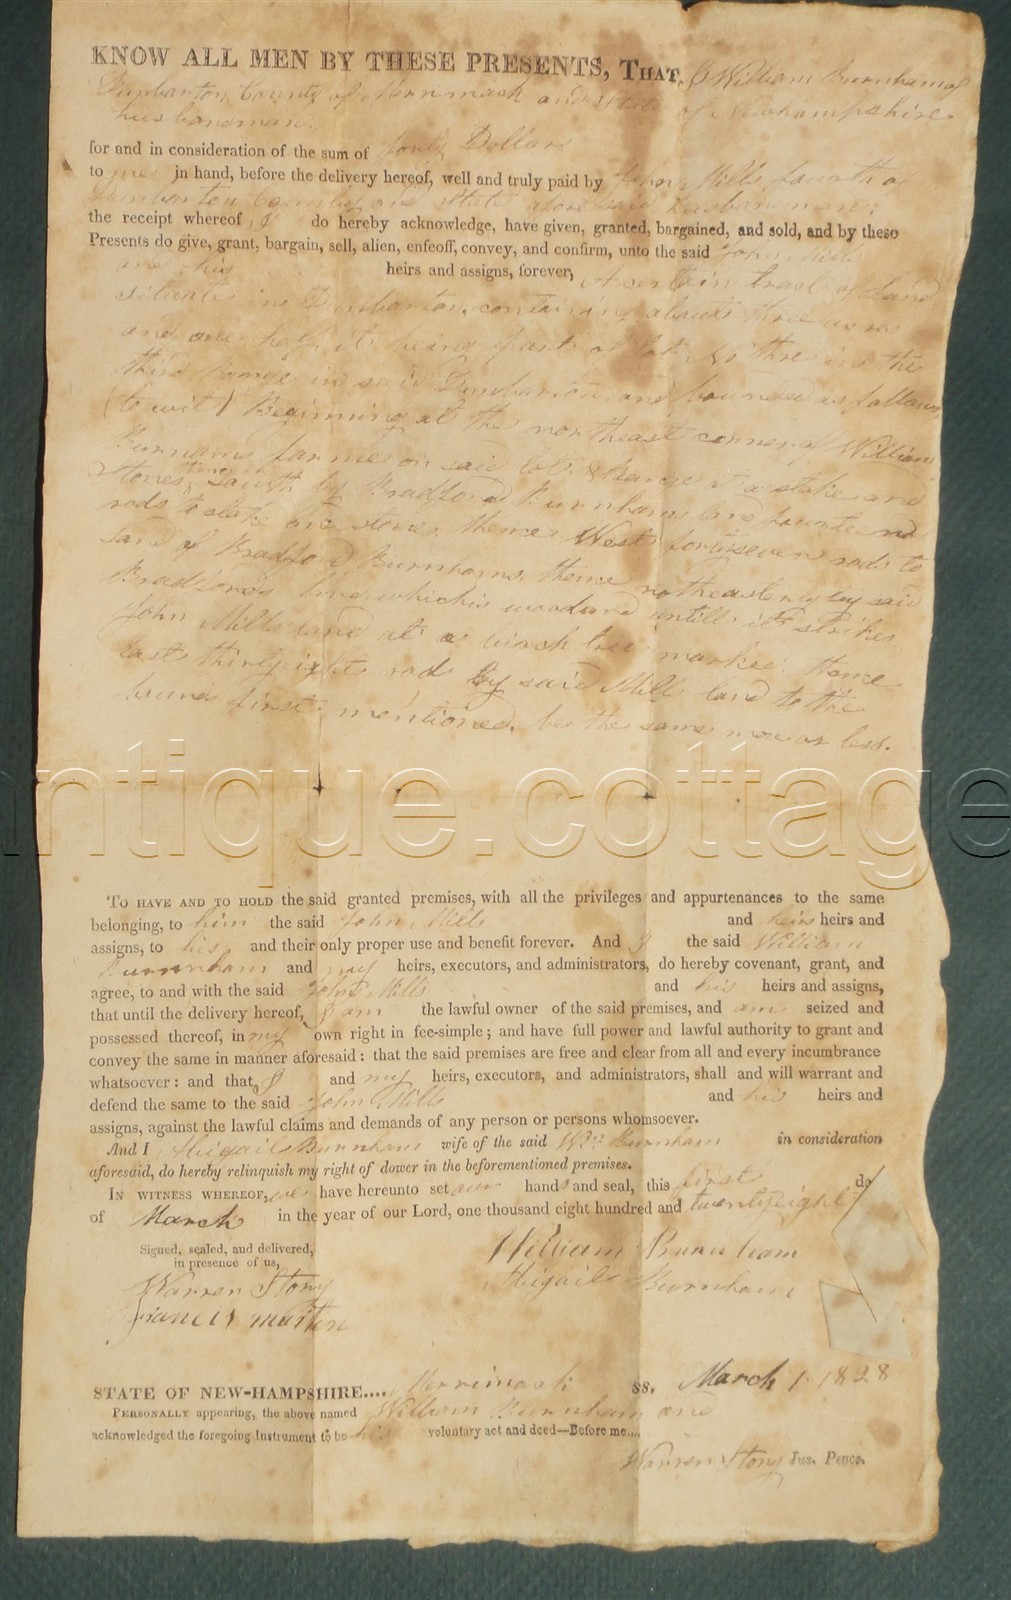 KNOW ALL MEN BY THESE PRESENTS, THAT, I William Burnham of
Dunbarton County of Merrimack and State of Newhampshire
husbandman
for and in consideration of the sum of forty Dollars
to me in hand, before the delivery hereof, well and truly paid by John Mills fourth of
Dunbarton County and State aforesaid husbandman
the receipt whereof I do hereby acknowledge, have given, granted, bargained, and sold, and by these
Presents do give, grant, bargain, sell, alien, enfeoff, convey, and confirm, unto the said John Mills
and his heirs and assigns, forever, A certain tract of Land
situate in Dunbarton, containing about three acres
and one half, it being part of lot No three in the
third Range in said Dunbarton and bounded as follows
(to wit) Beginning at the northeast corner of William
Burnams farme on said lot & Range at a stake and
Stones thence South by Bradford Burnhams land fourteen
rods to stake and stones thence West fortyseven rods to
land of Bradford Burnhams thence northeasterly by said
Bradfords land which is woodland untill it strikes
John Mills land at a birch tree marked thence
East thirtyeight rods by said Mills land to the
bounds first mentioned, be the same more or less.
antique.cottage
TO HAVE AND TO HOLD the said granted premises, with all the privileges and appurtenances to the same
belonging, to him the said John Mills and heirs heirs and
assigns, to his and their only proper use and benefit forever. And I the said William
Burnham and my heirs, executors, and administrators, do hereby covenant, grant, and
agree, to and with the said John Mills and his heirs and assigns,
that until the delivery hereof, I am the lawful owner of the said premises, and am seized and
possessed thereof, in my own right in fee-simple; and have full power and lawful authority to grant and
convey the same in manner aforesaid: that the said premises are free and clear from all and every incumbrance
whatsoever: and that I and my heirs, executors, and administrators, shall and will warrant and
defend the same to the said John Mills and his heirs and
assigns, against the lawful claims and demands of any person or persons whomsoever.
And I Abigail Burnham wife of the said Wm Burnham in consideration
aforesaid, do hereby relinquish my right of dower in the beforementioned premises.
IN WITNESS WHEREOF, we have hereunto set our hands and seal, this first da
of March in the year of our Lord, one thousand eight hundred and twentyeight
Signed, sealed, and delivered,
in presence of us,
William Burnham
Abigail Burnham
Warren Story
Francis
STATE OF NEW-HAMPSHIRE.... Merrimack ss. March 1 1828
PERSONALLY appearing, the above named William Burnham and
acknowledged the foregoing Instrument to be his voluntary act and deed—Before me....
Warren Story Jus. Peace.